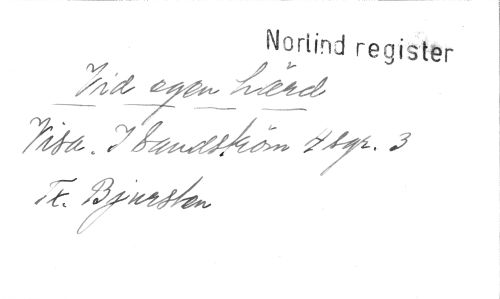 Norlind register
Vid egen härd
Visa. I Sandström 4 sgr. 3
Tx. Bjursten